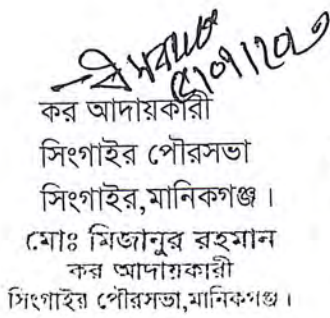 কর আদায়কারী
সিংগাইর পৌরসভা
সিংগাইর,মানিকগঞ্জ।
মোঃ মিজানুর রহমান
কর আদায়কারী
সিংগাইর পৌরসভা,মানিকগঞ্জ।